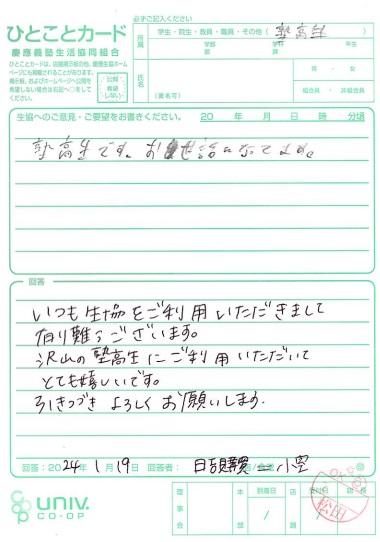 ひとことカード
慶應義塾生活協同組合
ひとことカードは、店頭掲示板の他、慶應生協ホームページにも掲載されることがあります。掲示板、およびホームページへ公開を希望しない場合は右記へ○をしてください。
公開希望しない
必ずご記入ください
所属
学生・院生・教員・職員・その他(塾高生)
学部 学科 年生
氏名
(匿名可)
男・女
組合員・非組合員
生協へのご意見・ご要望をお書きください。 20 年 月 日 時 分頃
塾高生です。お世話になってます。
回答
いつも生協をご利用いただきまして
有り難うございます。
沢山の塾高生にご利用いただいて
とても嬉しいです。
引きつづき よろしくお願いします。
回答:2024年1月19日 回答者: 日吉購買 小窪
UNIV.
CO-OP
理事会
本部
到着日
/
店舗
受付日
/
店長
松田